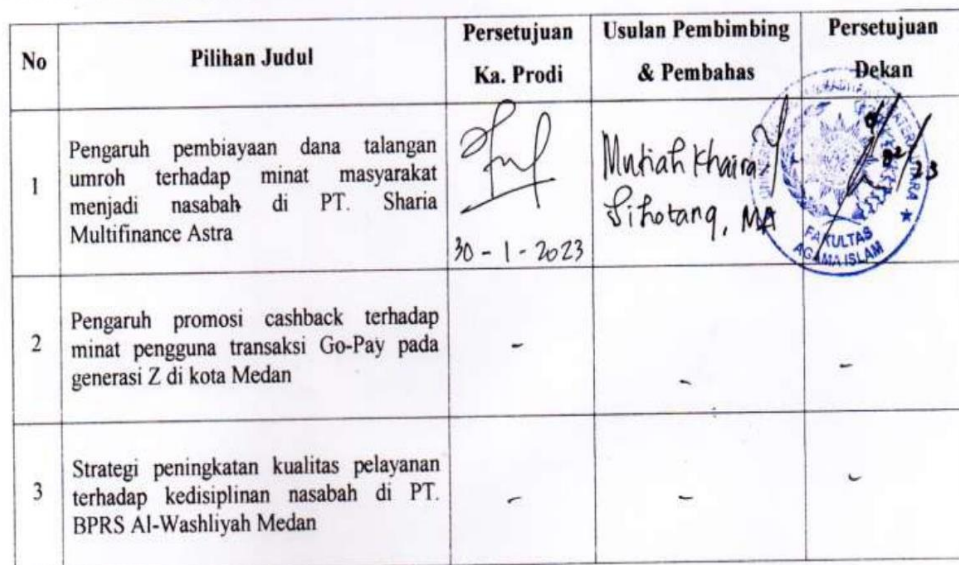 No
Pilihan Judul
Persetujuan
Ka. Prodi
Usulan Pembimbing
& Pembahas
Persetujuan
Dekan
1
Pengaruh pembiayaan dana talangan
umroh terhadap minat masyarakat
menjadi nasabah di PT. Sharia
Multifinance Astra
30 - 1 - 2023
Mutiah Khaira
Sihotang, MA
FAKULTAS
AGAMA ISLAM
2
Pengaruh promosi cashback terhadap
minat pengguna transaksi Go-Pay pada
generasi Z di kota Medan
-
-
-
3
Strategi peningkatan kualitas pelayanan
terhadap kedisiplinan nasabah di PT.
BPRS Al-Washliyah Medan
-
-
-